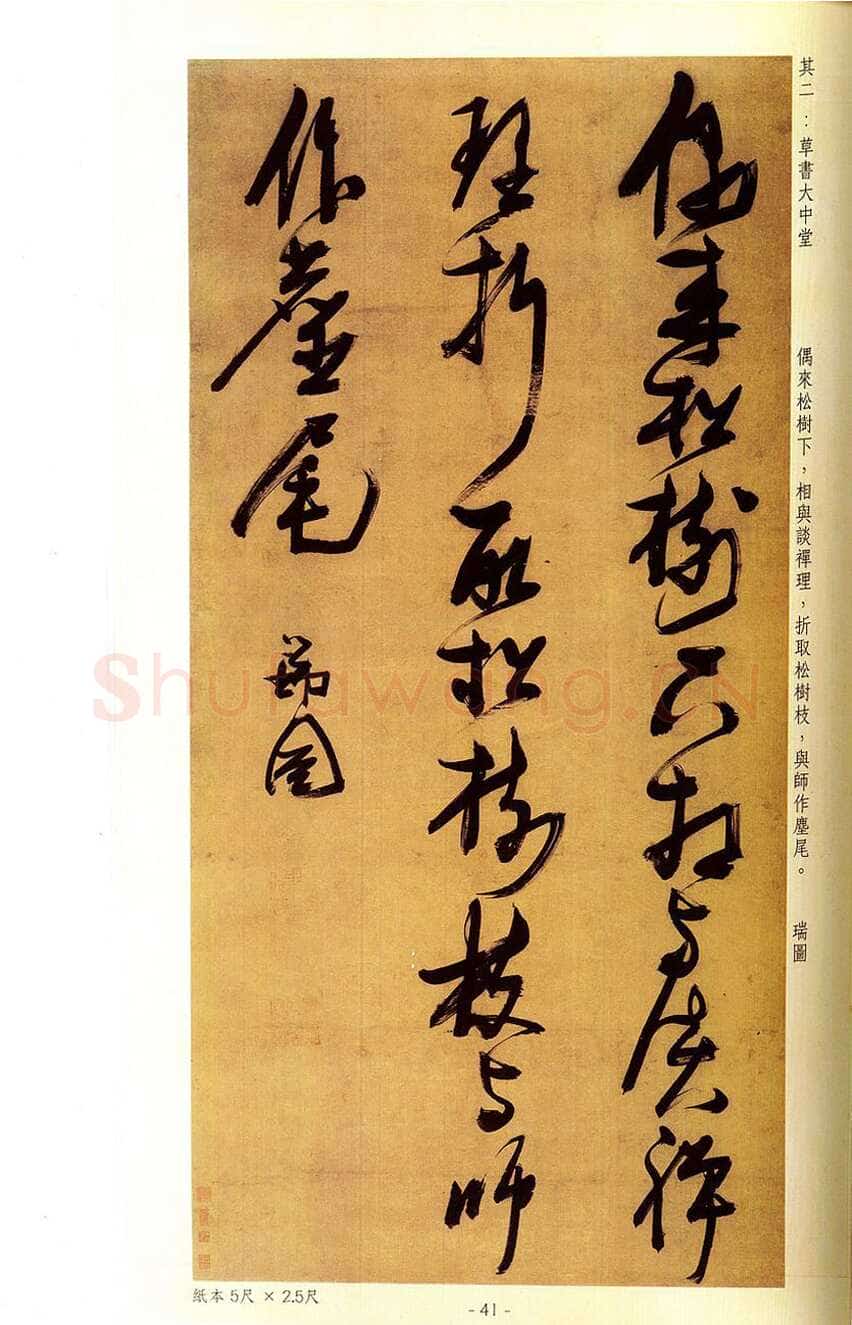 其二：草書大中堂　偶來松樹下，相與談禪理，折取松樹枝，與師作塵尾。　瑞圖
偶来松樹下相与談禪
理折取松樹枝与師
作塵尾
瑞图
Shufawang.CN
紙本 5尺 × 2.5尺
- 41 -